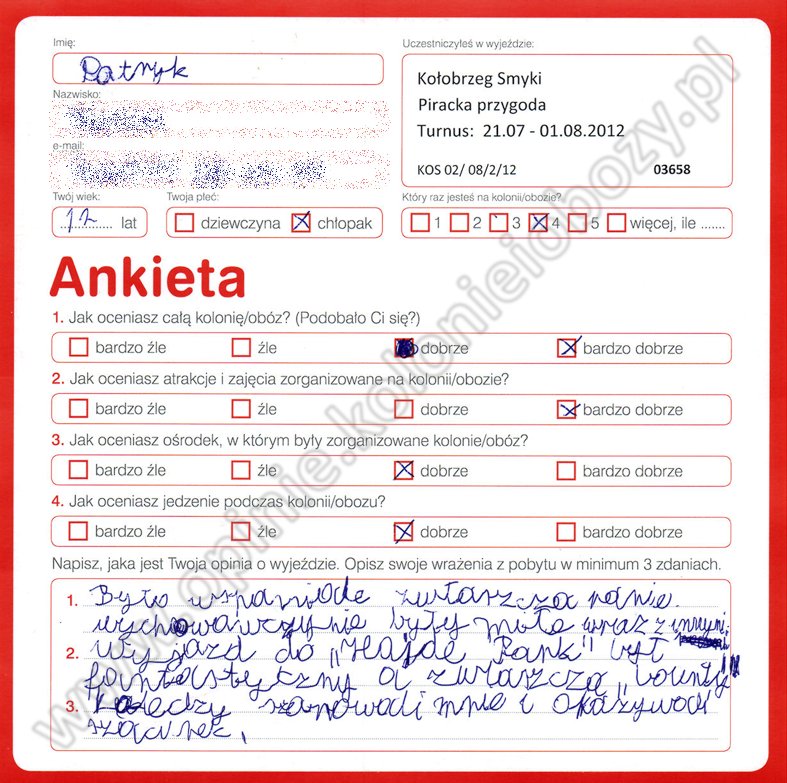 Imię:
Patryk
Uczestniczyłeś w wyjeździe:
Kołobrzeg Smyki
Piracka przygoda
Turnus: 21.07 - 01.08.2012
KOS 02/ 08/2/12 03658
Nazwisko:
e-mail:
Twój wiek:
12 lat
Twoja płeć:
dziewczyna chłopak
Który raz jesteś na kolonii/obozie?
1 2 3 4 5 więcej, ile .......
Ankieta
1. Jak oceniasz całą kolonię/obóz? (Podobało Ci się?)
bardzo źle źle dobrze bardzo dobrze
2. Jak oceniasz atrakcje i zajęcia zorganizowane na kolonii/obozie?
bardzo źle źle dobrze bardzo dobrze
3. Jak oceniasz ośrodek, w którym były zorganizowane kolonie/obóz?
bardzo źle źle dobrze bardzo dobrze
4. Jak oceniasz jedzenie podczas kolonii/obozu?
bardzo źle źle dobrze bardzo dobrze
Napisz, jaka jest Twoja opinia o wyjeździe. Opisz swoje wrażenia z pobytu w minimum 3 zdaniach.
1. Było wspaniole zwłarzcza panie
wychowawczynie były miłe wraz z innymi.
2. Wyjazd do „Hajde Park" był
fantastyczny a zwłarzcza „bounty"
3. koledzy szanowali mnie i okazywali
szacunek.
www.opinie.kolonieiobozy.pl